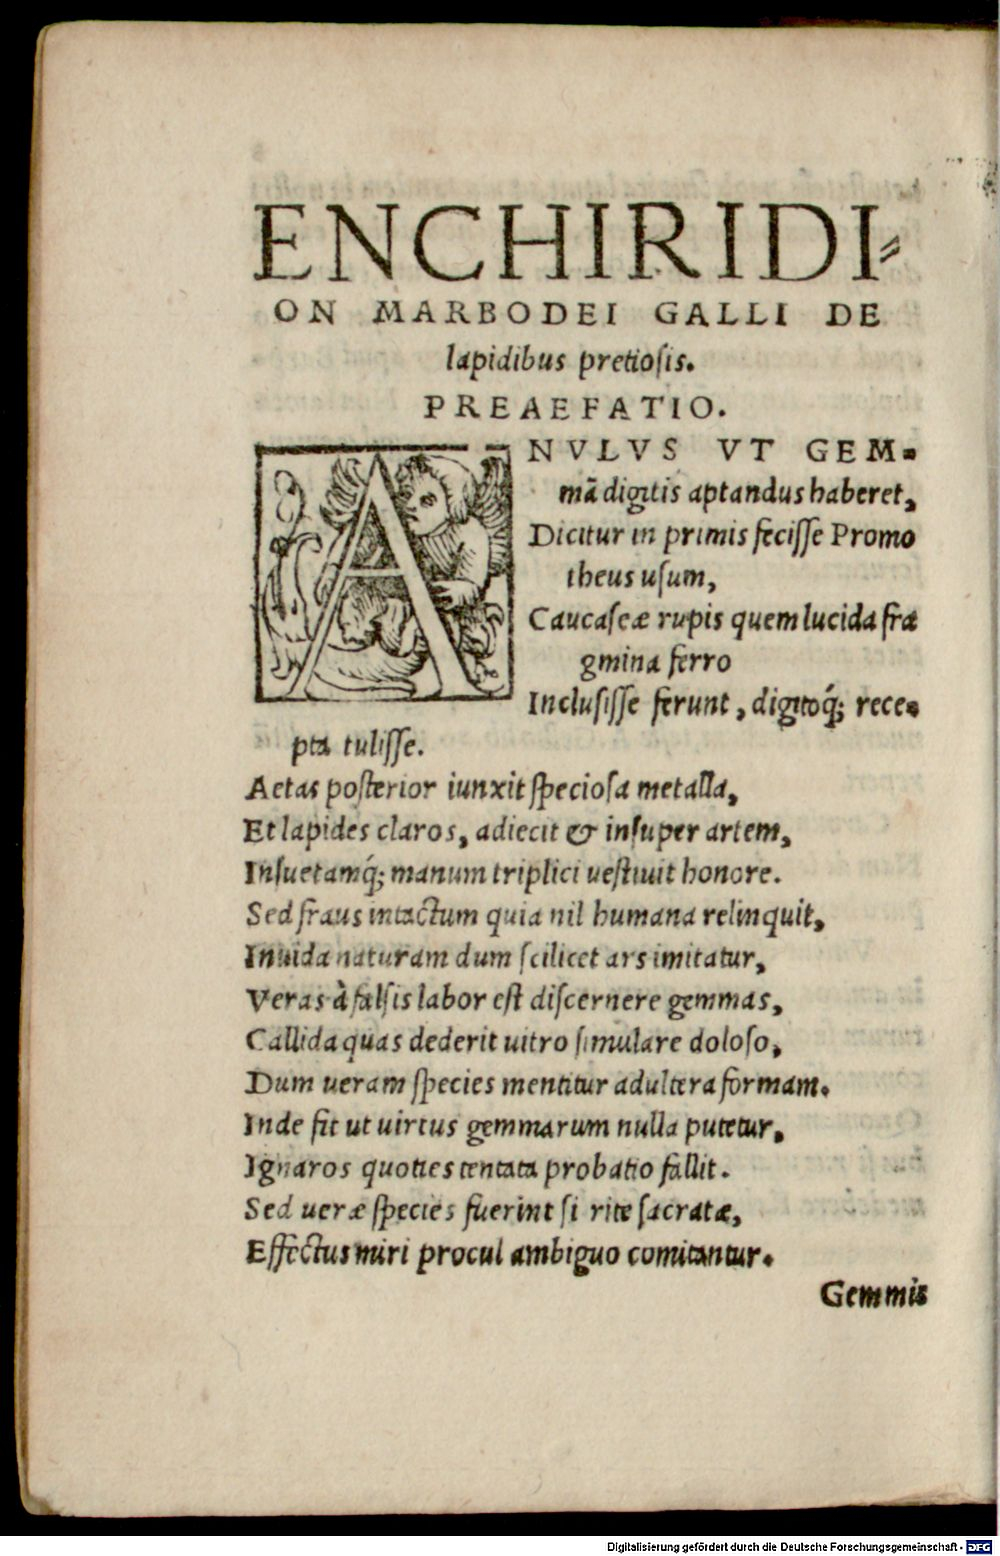 ENCHIRIDI⸗
ON MARBODEI GALLI DE
lapidibus pretiosis.
PREAEFATIO.
ANVLVS VT GEM⸗
mā digitis aptandus haberet,
Dicitur in primis fecisse Promo
theus usum,
Caucaseæ rupis quem lucida fra
gmina ferro
Inclusisse ferunt, digitoq́; rece⸗
pta tulisse.
Aetas posterior iunxit speciosa metalla,
Et lapides claros, adiecit & insuper artem,
Insuetamq́; manum triplici uestiuit honore.
Sed fraus intactum quia nil humana relinquit,
Inuida naturam dum scilicet ars imitatur,
Veras à falsis labor est discernere gemmas,
Callida quas dederit uitro simulare doloso,
Dum ueram species mentitur adultera formam.
Inde fit ut uirtus gemmarum nulla putetur,
Ignaros quoties tentata probatio fallit.
Sed ueræ species fuerint si rite sacratæ,
Effectus miri procul ambiguo comitantur.
Gemmis
Digitalisierung gefördert durch die Deutsche Forschungsgemeinschaft - DFG